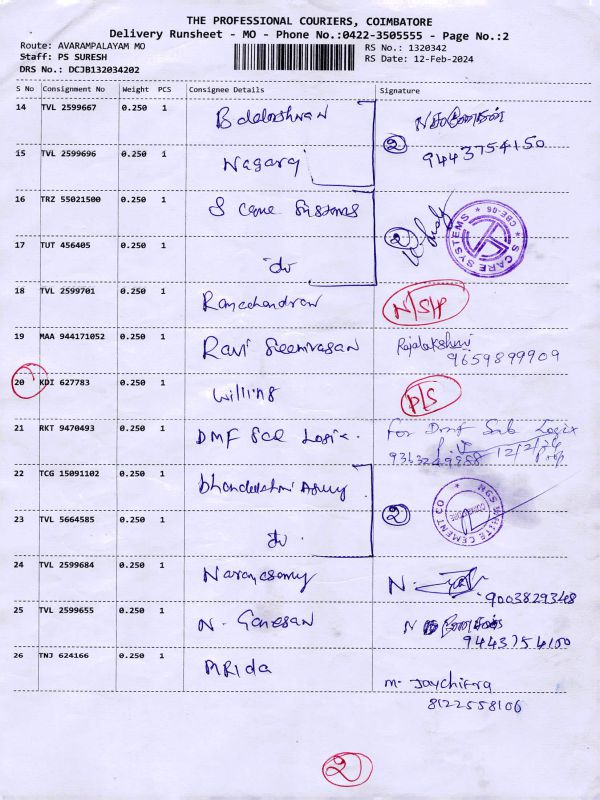 THE PROFESSIONAL COURIERS, COIMBATORE
Delivery Runsheet - MO - Phone No.:0422-3505555 - Page No.:2
Route: AVARAMPALAYAM MO
RS No.: 1320342
Staff: PS SURESH
RS Date: 12-Feb-2024
DRS No.: DCJB132034202
S No Consignment No Weight PCS Consignee Details Signature
14 TVL 2599667 0.250 1
②
9443754150
15 TVL 2599696 0.250 1 Nagaraj
16 TRZ 55021500 0.250 1 S Care Systems
②
S CARE SYSTEMS * CBE-06 *
17 TUT 456405 0.250 1 do
18 TVL 2599701 0.250 1 Ramachandran N/S/P
19 MAA 944171052 0.250 1 Ravi Sreenivasan Rajalakshmi
9659899909
20 KDI 627783 0.250 1 Willing P/S
21 RKT 9470493 0.250 1 DMF Sub Logix. For DMF Sub Logix
12/2/24
Prop
22 TCG 15091102 0.250 1
②
MGS WHITE CEMENT CO
23 TVL 5664585 0.250 1 do.
24 TVL 2599684 0.250 1 Narayasamy N.
9003829348
25 TVL 2599655 0.250 1 N. Ganesan N
9443754150
26 TNJ 624166 0.250 1 M. Jaychitra
8122558106
②